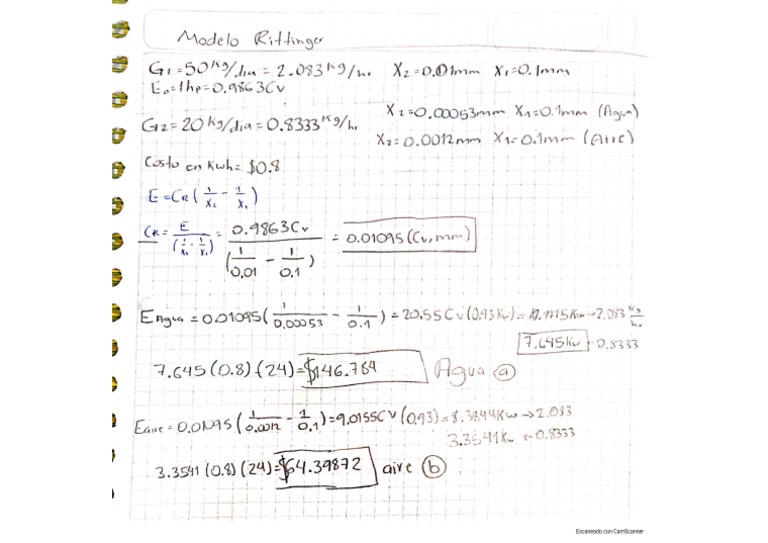 Modelo Rittinger
G1=50 Kg/dia = 2.083 Kg/hr X2=0.01mm X1=0.1mm
E0=1hp=0.9863Cv
X2=0.00053mm X1=0.1mm (Agua)
G2=20 Kg/dia=0.8333 Kg/hr
X2=0.0012mm X1=0.1mm (Aire)
Costo en Kwh= $0.8
E=CR(1/X2 - 1/X1)
CR= E/(1/X2 - 1/X1) = 0.9863Cv/(1/0.01 - 1/0.1) = 0.01095(Cv,mm)
EAgua=0.01095(1/0.00053 - 1/0.1)=20.55Cv(0.93Kw)= →2.083 Kg/hr
7.645Kw 0.8333
7.645(0.8)(24)=$146.784 Agua a
Eaire=0.01095(1/0.0012 - 1/0.1)=9.0155Cv(0.93)=8.3844Kw→2.083
3.3541Kw ←0.8333
3.3541(0.8)(24)=$64.39872 aire b
Escaneado con CamScanner